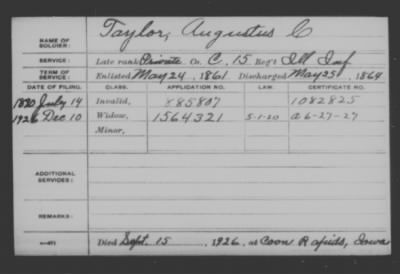 NAME OF SOLDIER: Taylor, Augustus C
SERVICE: Late rank Private Co. C, 15 Reg't Ill Inf
TERM OF SERVICE: Enlisted May 24, 1861 Discharged May 25, 1864
DATE OF FILING. CLASS. APPLICATION NO. LAW. CERTIFICATE NO.
1890 July 14 Invalid, 885807 1082825
1926 Dec 10 Widow, 1564321 5-1-20 a 6-27-27
Minor,
ADDITIONAL SERVICES:
REMARKS:
Died Sept. 15, 1926, at Coon Rapids, Iowa